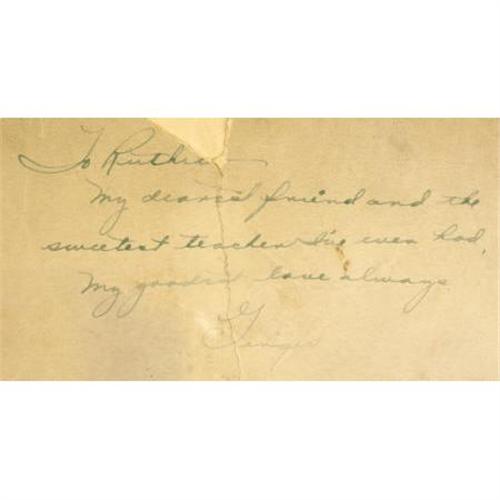 To Ruthie
My dearest friend and the
sweetest teacher I've ever had.
My goodest love always
Ginger